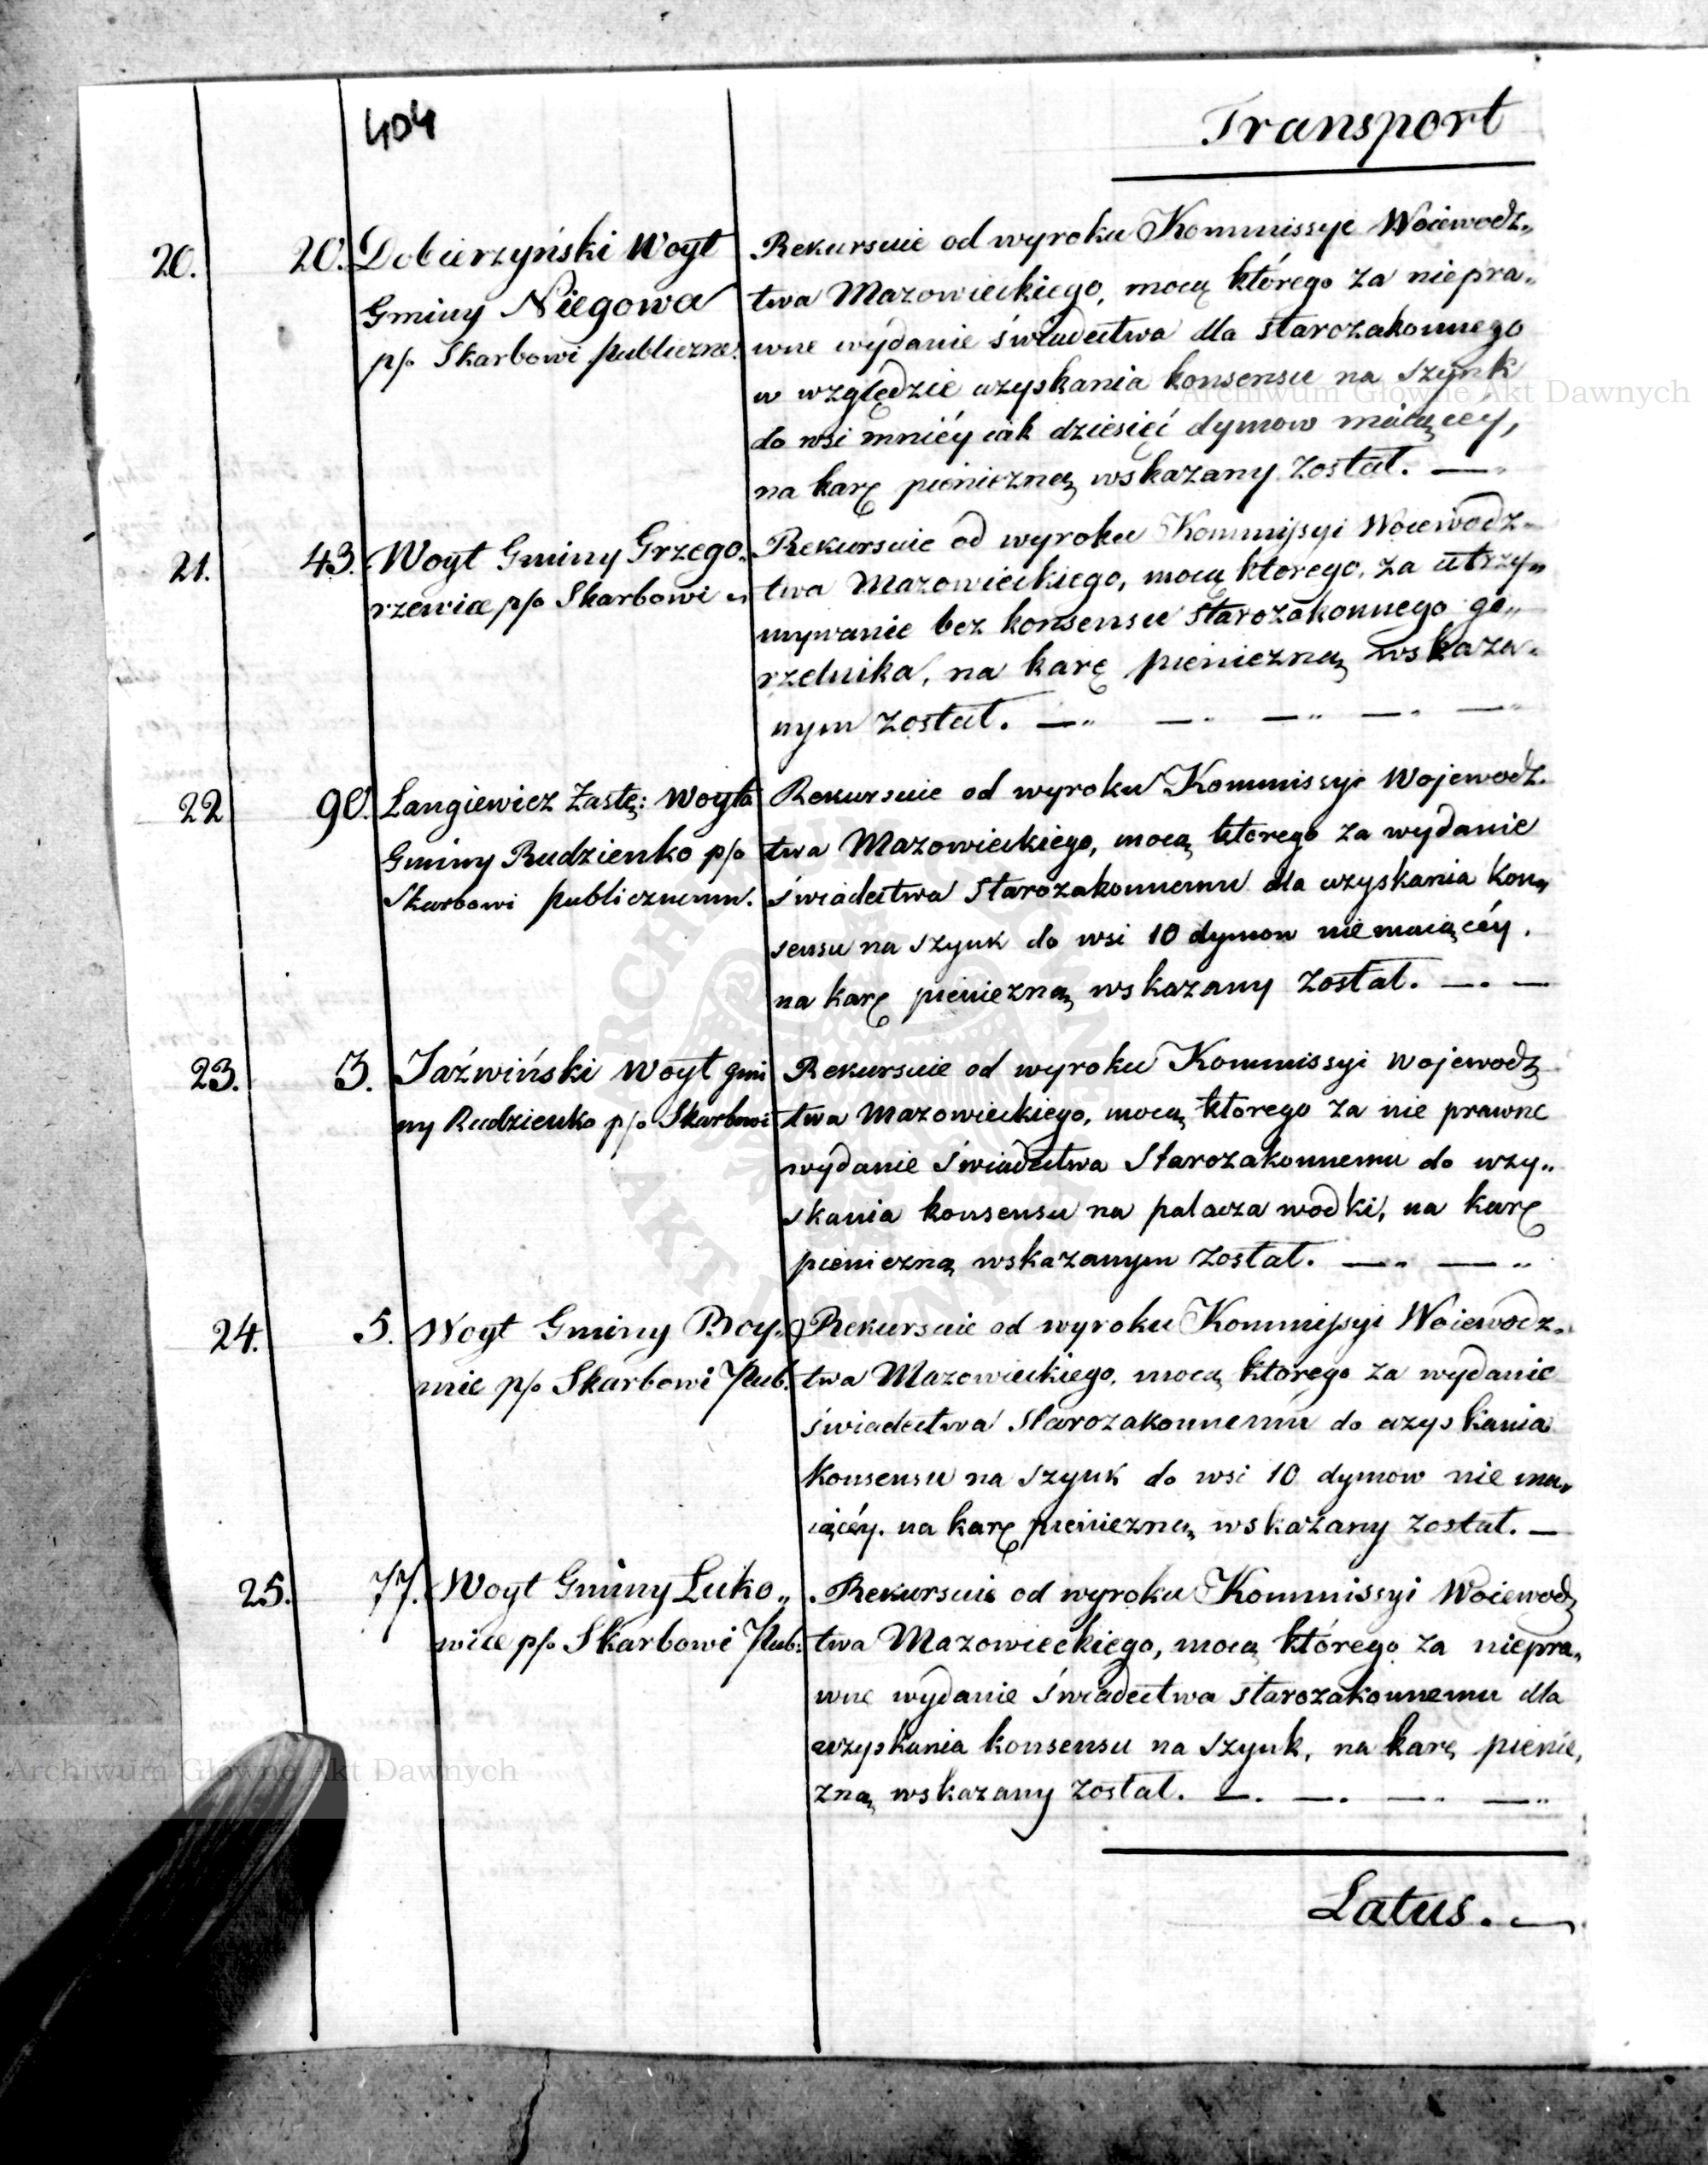 404
Transport
20. 20. Dobierzyński Woyt
Gminy Niegowa
p/o Skarbowi publiczne:
Rekursuie od wyroku Kommissyi Woiewodz„
twa Mazowieckiego, mocą którego za niepra„
wne wydanie świadectwa dla starozakonnego
w względzie uzyskania konsensu na szynk
do wsi mniéy iak dziesięć dymow maiącey,
na karę pieniezną wskazany został. —
21. 43. Woyt Gminy Grzego„
rzewice p/o Skarbowi „
Rekursuie od wyroku Kommissyi Woiewodz„
twa Mazowieckiego, mocą ktorego, za utrzy„
mywanie bez konsensu starozakonnego go„
rzelnika, na karę pieniezną wskaza„
nym został. — — — — —
22 90. Langiewicz Zastę: Woyta
Gminy Rudzienko p/o
Skarbowi publicznemu.
Rekursuie od wyroku Kommissyi Wojewodz.
twa Mazowieckiego, mocą ktorego za wydanie
świadectwa Starozakonnemu dla uzyskania kon„
sensu na szynk do wsi 10 dymow nie maiącéy,
na karę pieniezną wskazany został. — —
23. 3. Jaźwiński Woyt gmi
ny Rudzienko p/o Skarbowi
Rekursuie od wyroku Kommissyi Wojewodz
twa Mazowieckiego, mocą ktorego za nie prawne
wydanie świadectwa Starozakonnemu do uzy„
skania konsensu na palacza wodki, na karę
pieniezną wskazanym został. — —
24. 5. Woyt Gminy Boy„
mie p/o Skarbowi Pub.
Rekursuie od wyroku Kommissyi Woiewodz„
twa Mazowieckiego, mocą ktorego za wydanie
świadectwa Starozakonnemu do uzyskania
Konsensu na szynk do wsi 10 dymow nie ma„
iącéy, na karę pieniezną wskazany został. —
25. 77. Woyt Gminy Luko„
wice p/o Skarbowi Pub:
Rekursuie od wyroku Kommissyi Woiewodz
twa Mazowieckiego, mocą którego za niepra„
wne wydanie świadectwa starozakonnemu dla
uzyskania konsensu na szynk, na karę pienie„
zną wskazany został. — — — —
Latus. —
Archiwum Główne Akt Dawnych
Archiwum Główne Akt Dawnych
ARCHIWUM GŁÓWNE
AKT DAWNYCH